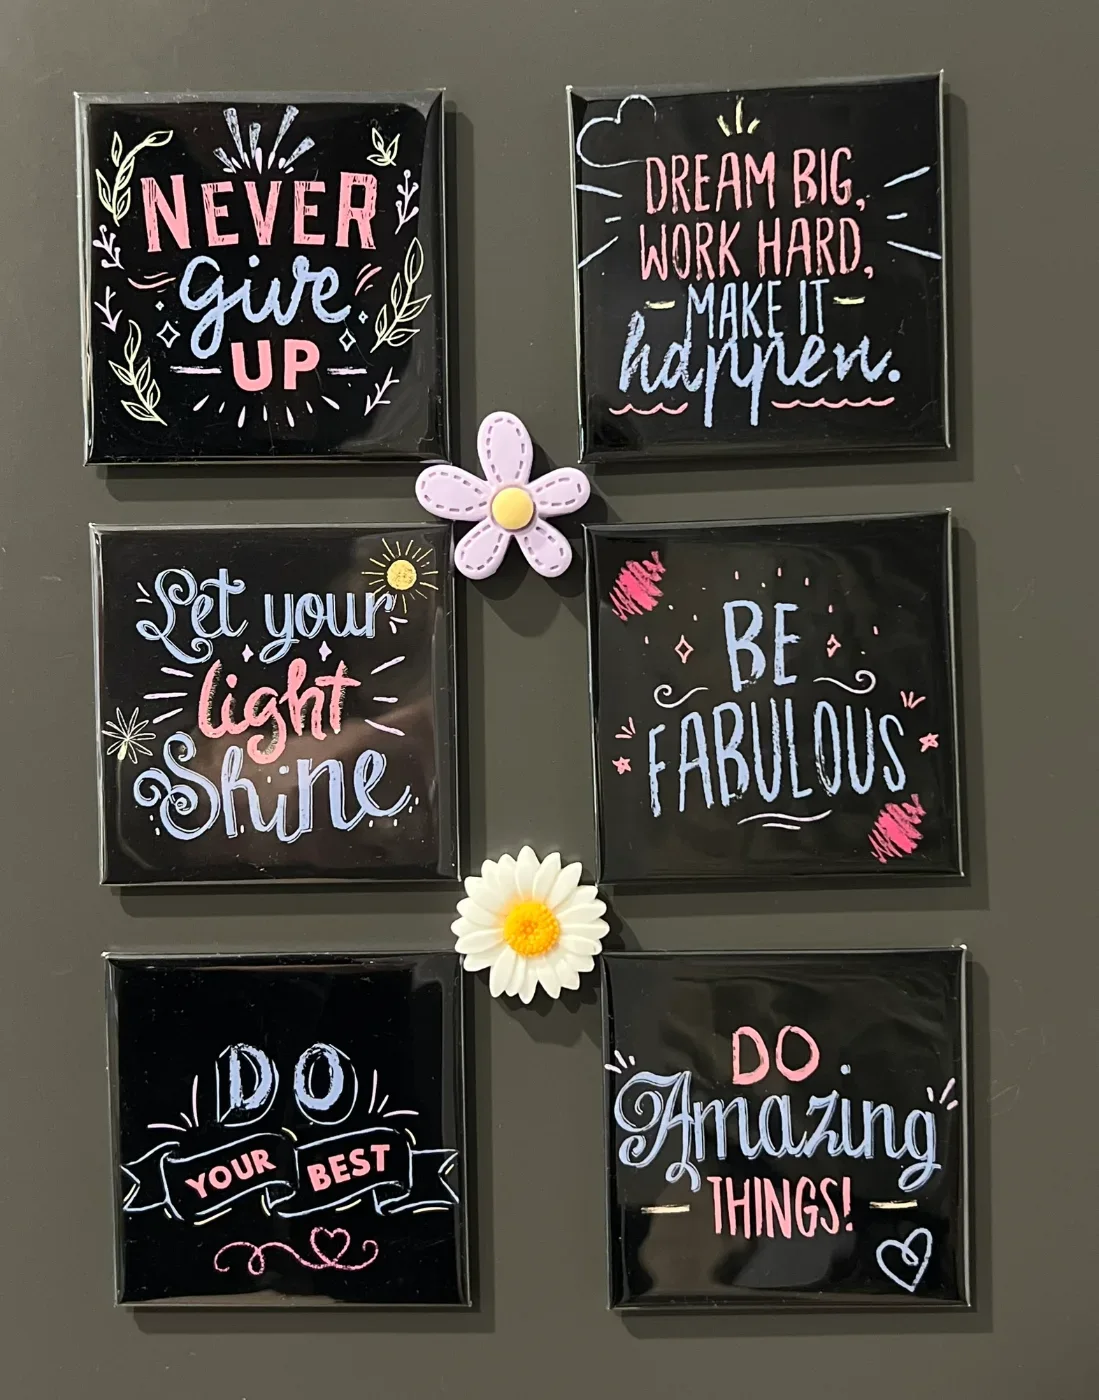 NEVER
give
UP
DREAM BIG,
WORK HARD,
MAKE IT
happen.
Let your
light
Shine
BE
FABULOUS
DO
YOUR BEST
DO
Amazing
THINGS!